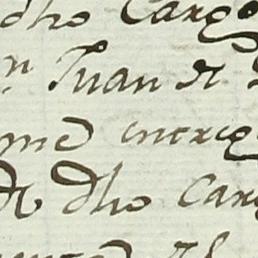 dho Cargo
n Juan de
me entreg
de dho Carg